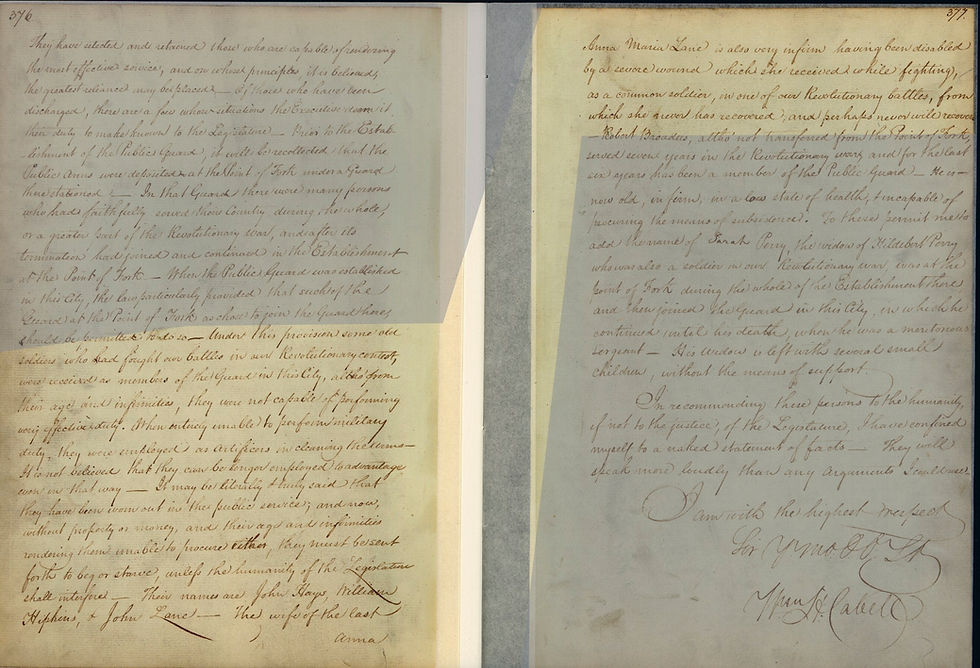 376
They have selected and retained those who are capable of rendering
the most effective service, and on whose principles, it is believed,
the greatest reliance may be placed — Of those who have been
discharged, there are a few whose situations the Executive deem it
their duty to make known to the Legislature — Prior to the Estab-
lishment of the Public Guard, it will be recollected that the
Public Arms were deposited at the Point of Fork under a Guard
there stationed — In that Guard there were many persons
who had faithfully served their Country during the whole,
or a greater part of the Revolutionary war, and after its
termination had joined and continued in the Establishment
at the Point of Fork — When the Public Guard was established
in this City, the law particularly provided that such of the
Guard at the Point of Fork as chose to join the Guard here,
should be permitted to do so — Under this provision some old
soldiers who had fought our battles in our Revolutionary contest,
were received as members of the Guard in this City, altho' from
their age and infirmities, they were not capable of performing
very effective duty. When entirely unable to perform military
duty, they were employed as Artificers in cleaning the arms —
It is not believed that they can be longer employed to advantage
even in that way — It may be literally & truly said that
they have been worn out in the public service; and now,
without property or money, and their age and infirmities
rendering them unable to procure either, they must be sent
forth to beg or starve, unless the humanity of the Legislature
shall interfere — Their names are John Hays, William
Hipkins, & John Lane — The wife of the last
Anna
377.
Anna Maria Lane is also very infirm having been disabled
by a severe wound which she received while fighting,
as a common soldier, in one of our Revolutionary battles, from
which she never has recovered, and perhaps never will recover
— Robert Broaders, altho' not transfered from the Point of Fork
served seven years in the Revolutionary war, and for the last
six years has been a member of the Public Guard — He is
now old, infirm, in a low state of health, & incapable of
procuring the means of subsistence. To these permit me to
add the name of Sarah Perry, the widow of Hildebert Perry
who was also a soldier in our Revolutionary war, was at the
Point of Fork during the whole of the Establishment there
and then joined the Guard in this City, in which he
continued until his death, when he was a meritorious
sergeant — His widow is left with several small
children, without the means of support.
In recommending these persons to the humanity,
if not to the justice, of the Legislature, I have confined
myself to a naked statement of facts — They will
speak more loudly than any arguments I could use.
I am with the highest respect
Sir Yr mo Ob St
Wm H. Cabell